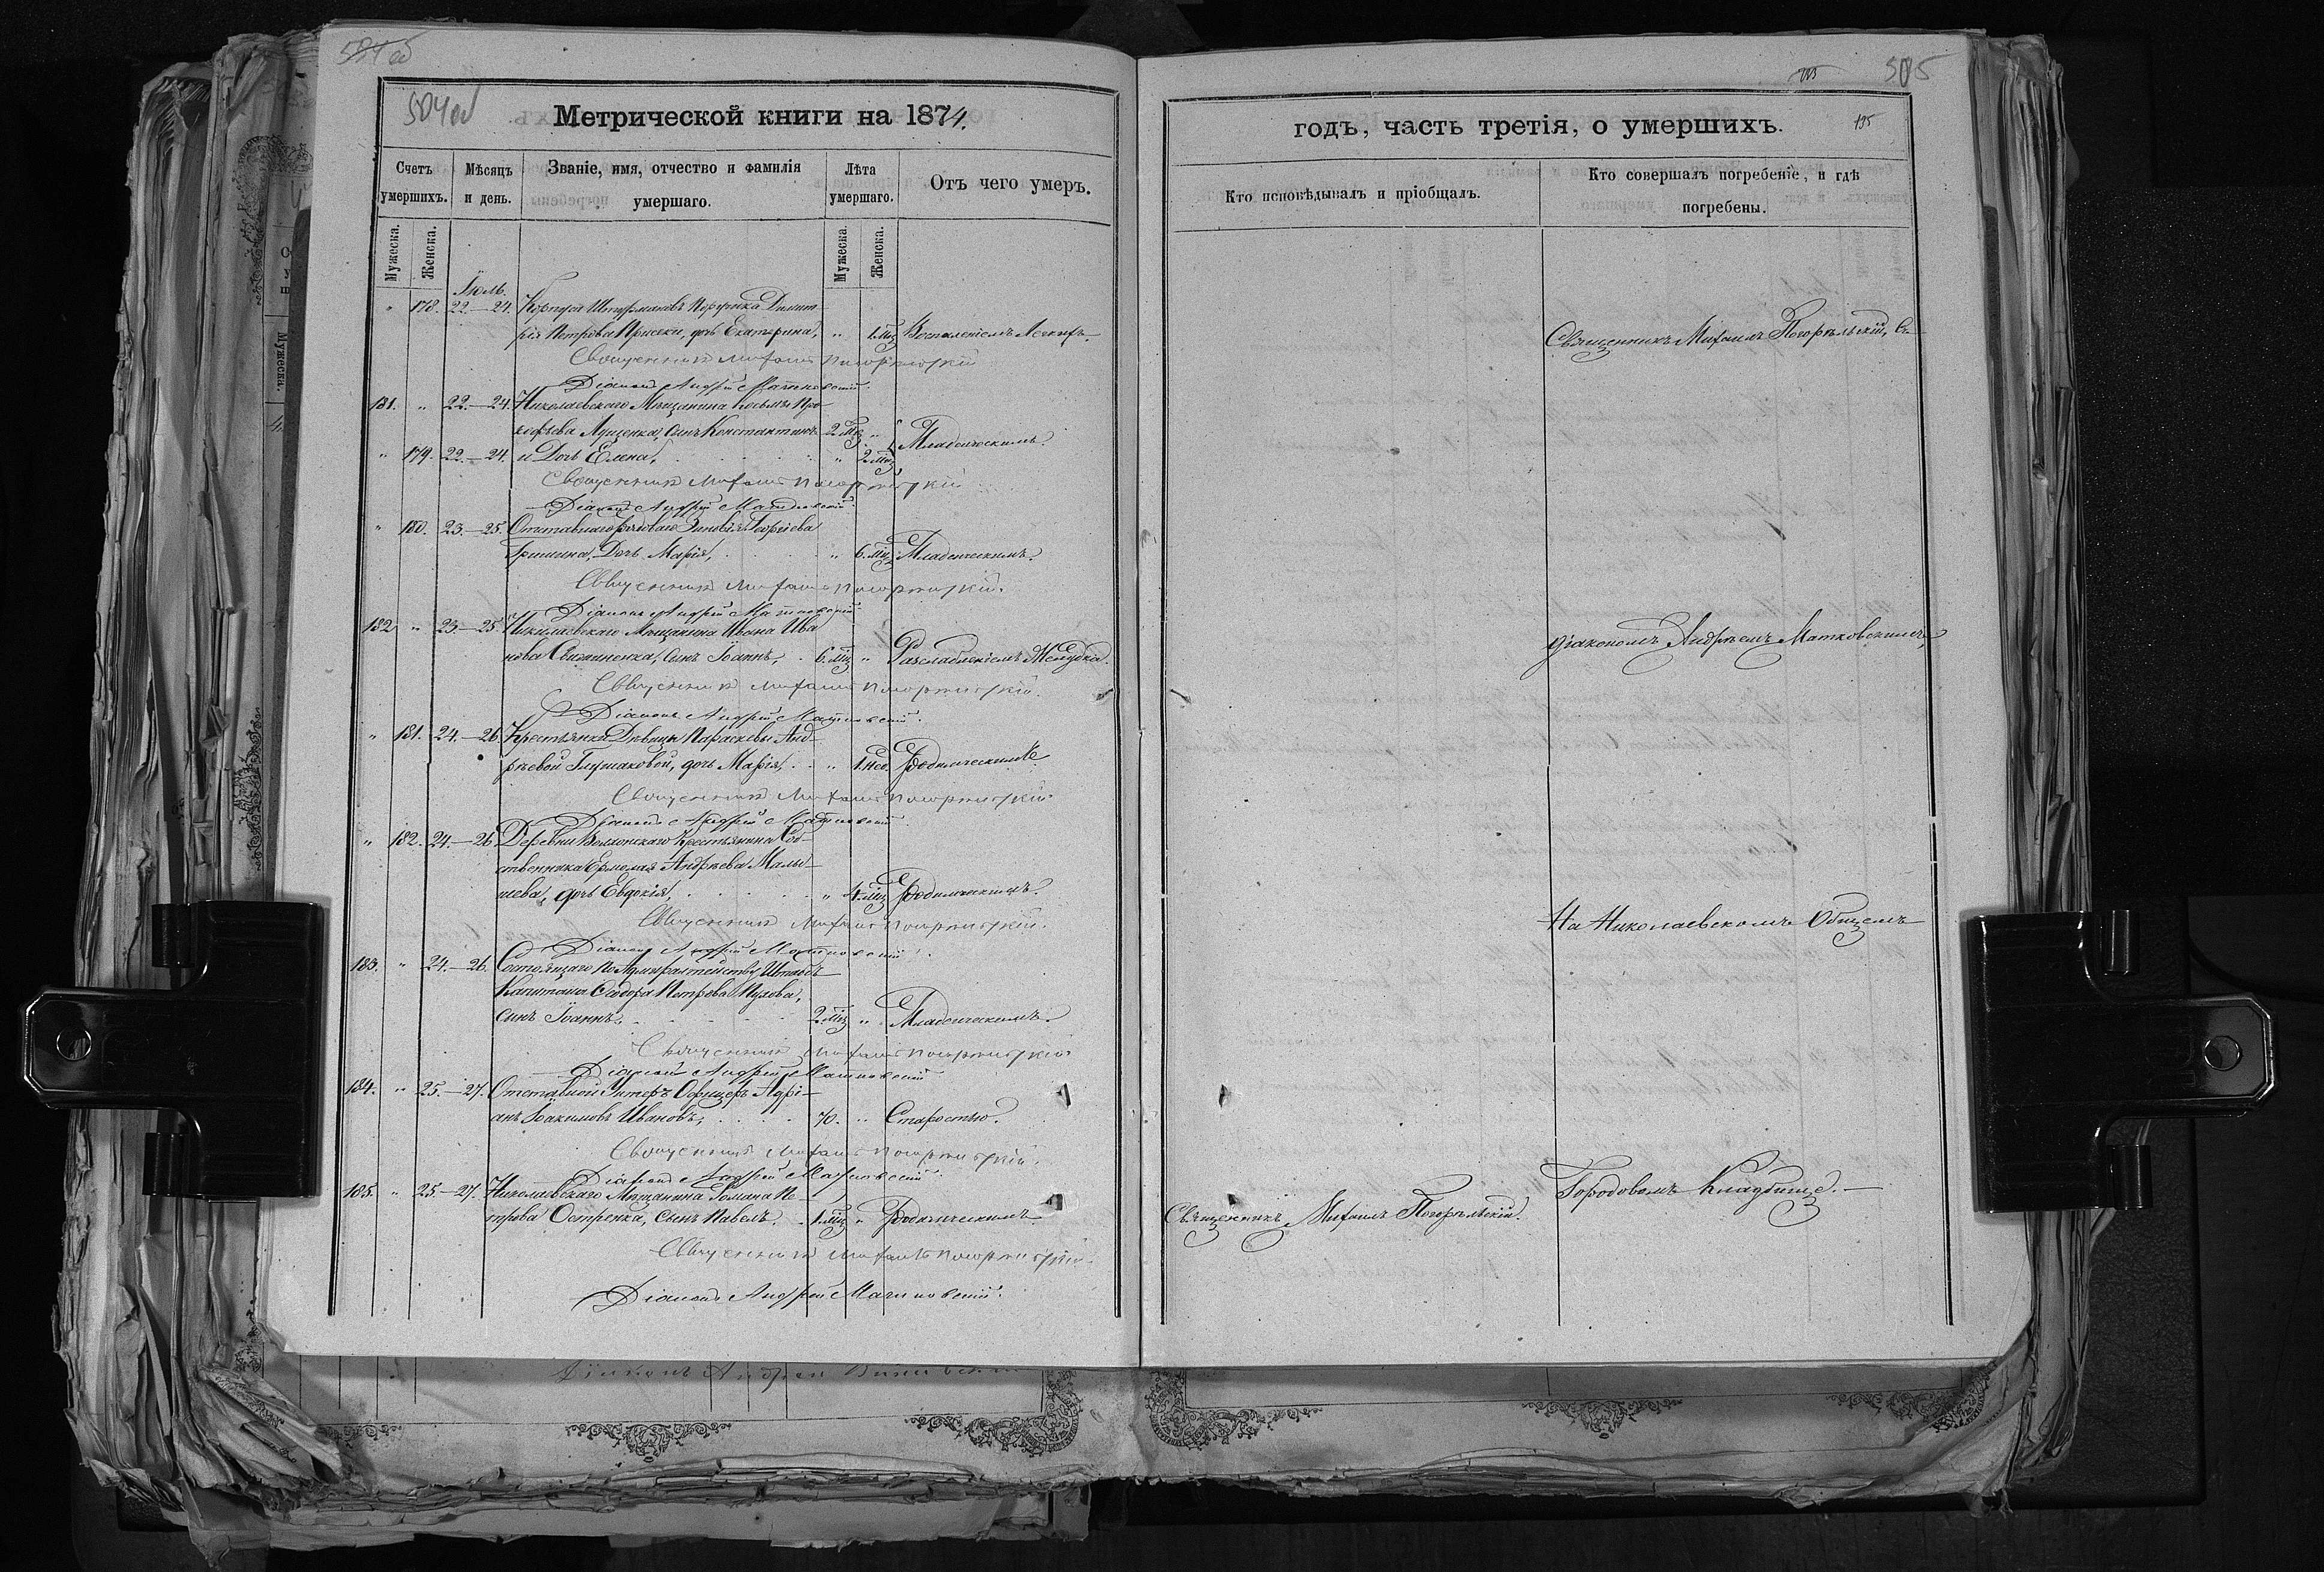 504 об
Метрической книги на 1874.
Счетъ умершихъ.
Мѣсяцъ и день.
Званіе, имя, отчество и фамилія умершаго.
Лѣта умершаго.
Отъ чего умеръ.
Мужеска.
Женска.
Мужеска.
Женска.
Іюль.
" 178. 22.—24. Корпуса Штурмановъ Поручика Димит-
рія Петрова дочь Екатерина, " 1 мѣс. Воспаленіемъ Легкихъ.
Священникъ Михаилъ Погорѣльскій
Діаконъ Андрей Матковскій.
181. " 22.—24. Николаевскаго Мѣщанина Косьмы Про-
кофьева Луценка, сынъ Константинъ 2 мѣс. "
Младенческимъ.
" 179. 22.—24. и Дочь Елена, " 2 мѣс.
Священникъ Михаилъ Погорѣльскій
Діаконъ Андрей Матковскій.
" 180. 23.—25. Отставнаго рядоваго Зиновія Георгіева
Гришина, Дочь Марія, " 6 мѣс. Младенческимъ.
Священникъ Михаилъ Погорѣльскій.
Діаконъ Андрей Матковскій.
182 " 23.—25. Николаевскаго Мѣщанина Ивана Ива
нова сынъ Іоаннъ, 6 мѣс. " Разслабленіемъ Желудка.
Священникъ Михаилъ Погорѣльскій.
Діаконъ Андрей Матковскій.
" 181. 24.—26. Крестьянки Дѣвицы Параскевы Анд-
рѣевой Глушаковой, дочь Марія, " 1 нед. Родимческимъ.
Священникъ Михаилъ Погорѣльскій.
Діаконъ Андрей Матковскій.
" 182. 24.—26. Деревни Крестьянина Соб-
ственника Ермолая Андрѣева Малы-
шева, дочь Евдокія, " 4 мѣс. Родимческимъ.
Священникъ Михаилъ Погорѣльскій.
Діаконъ Андрей Матковскій.
183. " 24.—26. Состоящаго по Адмиралтейству Штабсъ
Капитана Ѳеодора Петрова Пузова,
сынъ Іоаннъ, 2 мѣс. " Младенческимъ.
Священникъ Михаилъ Погорѣльскій.
Діаконъ Андрей Матковскій
184. " 25.—27. Отставной Унтеръ Офицеръ Адрі-
анъ Іоакимовъ Ивановъ, 70. " Старостью.
Священникъ Михаилъ Погорѣльскій.
Діаконъ Андрей Матковскій
185. " 25.—27. Николаевскаго Мѣщанина Романа Пе-
трова Остренка, сынъ Павелъ. 1 мѣс. " Родимческимъ
Священникъ Михаилъ Погорѣльскій.
Діаконъ Андрей Матковскій.
505
195
годъ, часть третія, о умершихъ.
Кто исповѣдывалъ и пріобщалъ.
Кто совершалъ погребеніе, и гдѣ погребены.
Священникъ Михаилъ Погорѣльскій, съ
діакономъ Андреемъ Матковскимъ,
На Николаевскомъ Общемъ
Городовомъ Кладбищѣ.—
Священникъ Михаилъ Погорѣльскій.